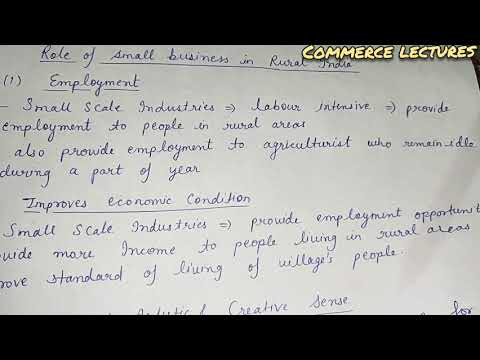 COMMERCE LECTURES
Role of small business in Rural India
(1) Employment
- Small Scale Industries ⇒ labour intensive ⇒ provide
employment to people in rural areas
also provide employment to agriculturist who remain idle
during a part of year
Improves economic Condition
Small Scale Industries ⇒ provide employment opportunit
vide more Income to people living in rural areas
rove standard of living of village's people.
Creative Sense
for